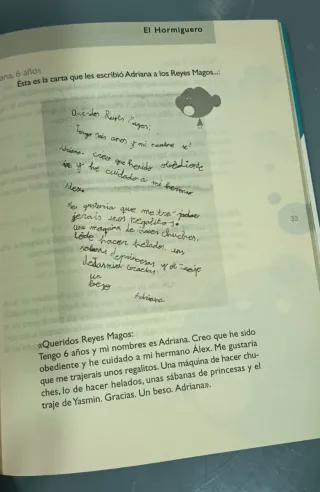 El Hormiguero
ana, 6 años
Esta es la carta que les escribió Adriana a los Reyes Magos...:
Queridos Reyes Magos:
Tengo seis años y mi nombre
Adriana creo que he sido obediente
y he cuidado a mi hermano
Alex.
Me gustaria que me tra
jerais unos regalitos
una maquina de hacer chuches,
lo de hacer helados, unas
sabanas de princesas y el traje
de Yasmin Gracias
un
beso
Adriana
33
«Queridos Reyes Magos:
Tengo 6 años y mi nombres es Adriana. Creo que he sido
obediente y he cuidado a mi hermano Álex. Me gustaría
que me trajerais unos regalitos. Una máquina de hacer chu-
ches, lo de hacer helados, unas sábanas de princesas y el
traje de Yasmin. Gracias. Un beso. Adriana».